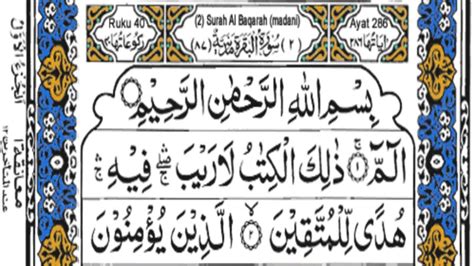 Ruku 40 (2) Surah Al Baqarah (madani) Ayat 286
رکوعاتها ۴۰ (۲) سُوْرَةُ الْبَقَرَةِ مَدَنِيَّةٌ (۸۷) اٰیاتها ۲۸۶
بِسْمِ اللّٰهِ الرَّحْمٰنِ الرَّحِيْمِ
الٓمّٓ ۚ ۱ ذٰلِكَ الْكِتٰبُ لَا رَيْبَ ۛۖ فِيْهِ ۛۚ
هُدًى لِّلْمُتَّقِيْنَ ۙ ۲ الَّذِيْنَ يُؤْمِنُوْنَ
الجزء الاول
معانقة ۱
عند المتاخرين ۱۲